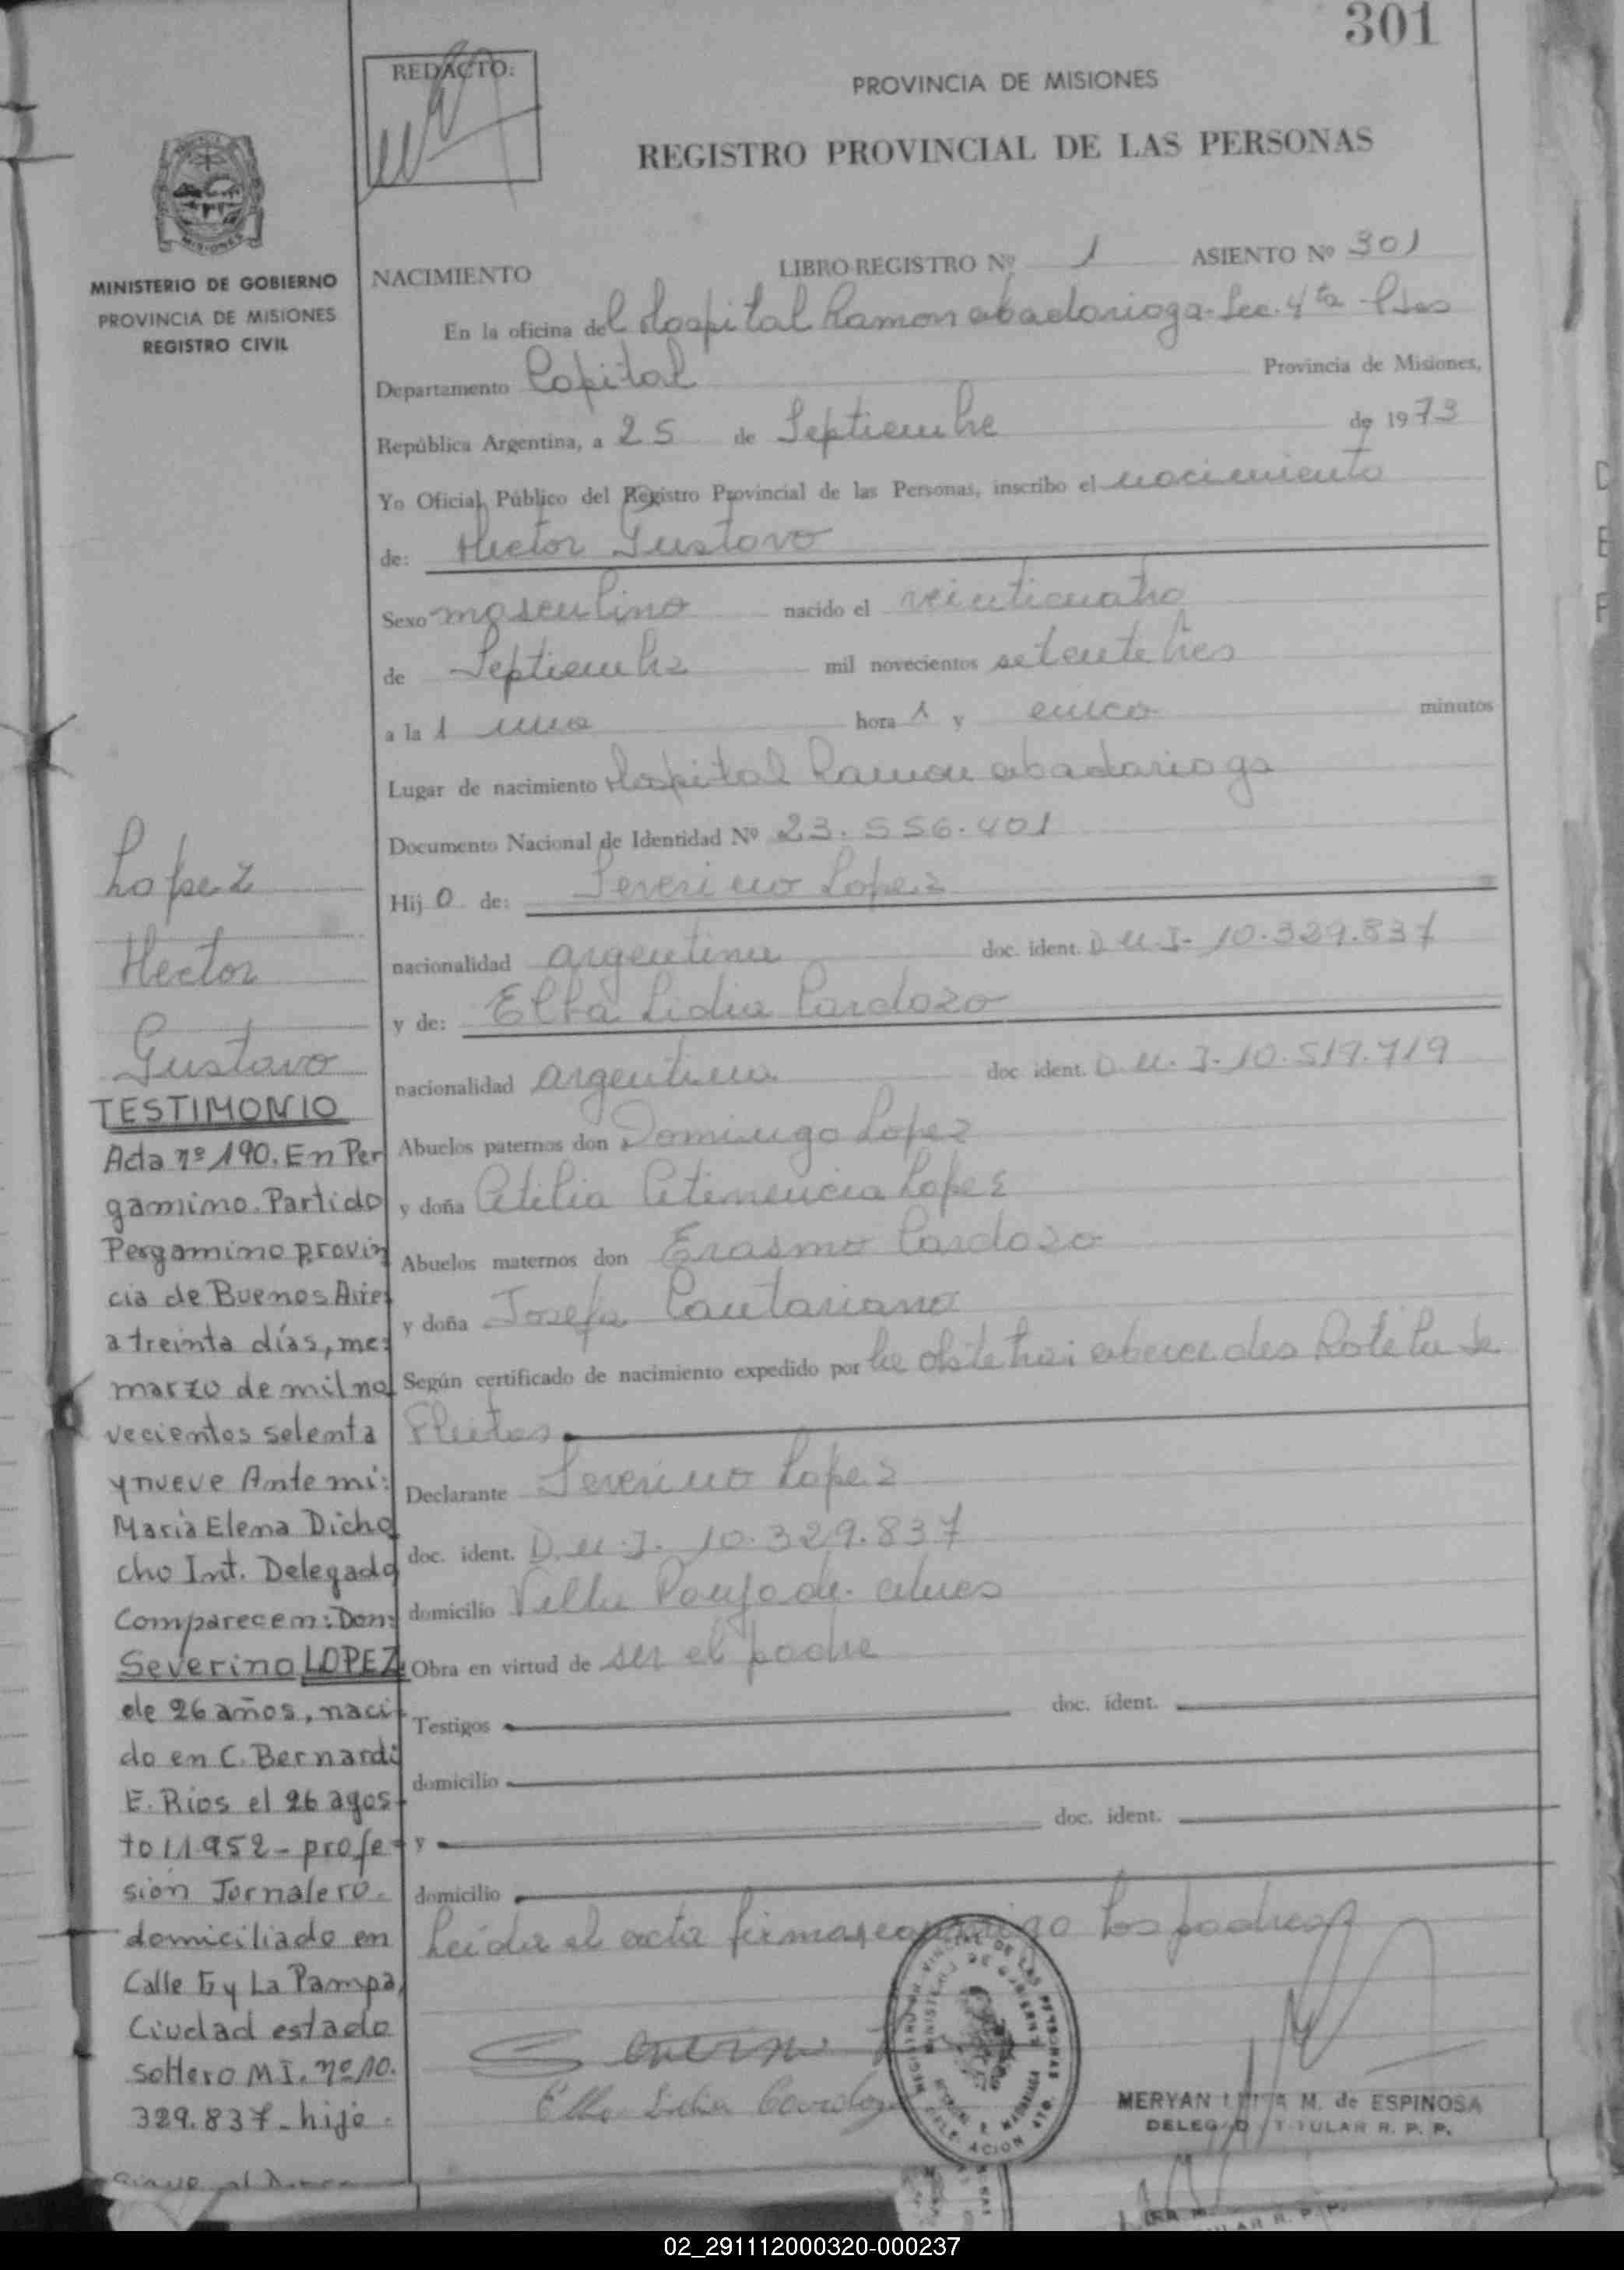 301
REDACTO:
PROVINCIA DE MISIONES
REGISTRO PROVINCIAL DE LAS PERSONAS
MISIONES
MINISTERIO DE GOBIERNO
PROVINCIA DE MISIONES
REGISTRO CIVIL
NACIMIENTO LIBRO-REGISTRO Nº 1 ASIENTO Nº 301
En la oficina del Hospital Ramon abadarioga. Sec. 4ta
Departamento Capital Provincia de Misiones,
República Argentina, a 25 de Septiembre de 1973
Yo Oficial Público del Registro Provincial de las Personas, inscribo el nacimiento
de: Hector Gustavo
Sexo masculino nacido el veinticuatro
de Septiembre mil novecientos setenta tres
a la 1 una hora 1 y cinco minutos
Lugar de nacimiento Hospital Ramon abadarioga
Documento Nacional de Identidad Nº 23.556.401
Hijo de: Severino Lopez
nacionalidad argentina doc. ident. D.N.I. 10.329.837
y de: Elba Lidia Cardozo
nacionalidad argentina doc ident. D.N.I. 10.519.719
Abuelos paternos don Domingo Lopez
y doña Lopez
Abuelos maternos don Erasmo Cardozo
y doña Josefa
Según certificado de nacimiento expedido por la obstetra: de
Fleitas
Declarante Severino Lopez
doc. ident. D.N.I. 10.329.837
domicilio Villa
Obra en virtud de ser el padre
Testigos doc. ident.
domicilio
y doc. ident.
domicilio
Leida el acta firman conmigo los padres
Severino
Elba Lidia Cardozo
MERYAN M. de ESPINOSA
DELEGAD TITULAR R. P. P.
Lopez
Hector
Gustavo
TESTIMONIO
Acta nº 190. En Per
gamino. Partido
Pergamino provin
cia de Buenos Aires
a treinta días, mes
marzo de mil no
vecientos setenta
y nueve Ante mi:
Maria Elena Dicho
cho Int. Delegado
Comparecen: Don:
Severino LOPEZ
de 26 años, naci
do en C. Bernardi
E. Rios el 26 agos
to 1.952 - profe
sión Jornalero.
domiciliado en
Calle G y La Pampa,
Ciudad estado
soltero M I. nº 10.
329.837 - hijo
02_291112000320-000237